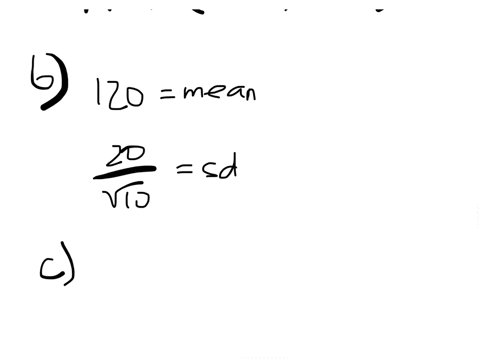 b) 120 = mean
20/√10 = sd
c)